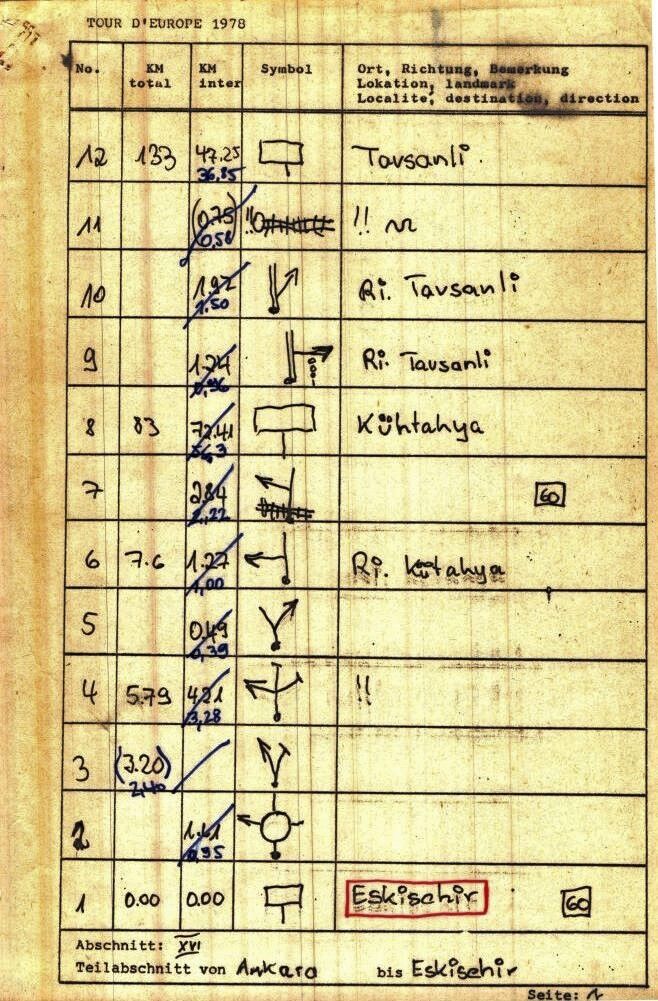 TOUR D'EUROPE 1978
No. KM total KM inter Symbol Ort, Richtung, Bemerkung
Lokation, landmark
Localite, destination, direction
12 133 47.25 Tavsanli.
36,85
11 (0.75) !! !!
0,58
10 1.92 Ri. Tavsanli
1.50
9 1.24 Ri. Tavsanli
0,96
8 83 72.41 Kühtahya
56,3
7 2.84 60
2,22
6 7.6 1.27 Ri. Kütahya
1,00
5 0.49
0,39
4 5.79 4.21 !!
3,28
3 (3.20)
2,40
2 1.61
0,95
1 0.00 0.00 Eskischir 60
Abschnitt: XVI
Teilabschnitt von Ankara bis Eskischir
Seite: 1